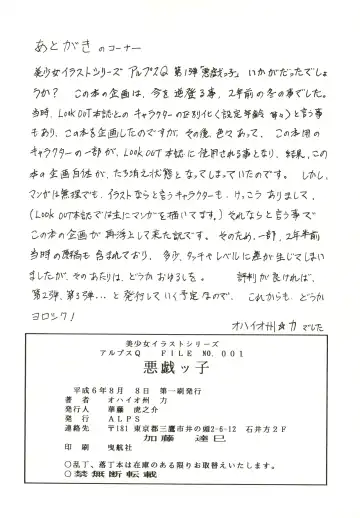 あとがき のコーナー
美少女イラストシリーズ アルプスQ 第1弾「悪戯っ子」 いかがだったでしょ
うか? この本の企画は、今を遡る事、2年前の冬の事でした。
当時、LOOK OUT本誌との キャラクターの区別化く(設定年齢 等々)と言う事
もあり、この本を企画したのですが、その後、色々あって、この本用の
キャラクターの一部が、LOOK OUT 本誌に使用される事となり、結果、この
本の企画自体が、たち消え状態となってしまっていたのです。 しかし、
マンガは無理でも、イラストならと言うキャラクターも、けっこうありまして、
(LOOK OUT本誌では主にマンガを描いてます。) それならと言う事で
この本の企画が再浮上して来た訳です。 そのため、一部、2年半前
当時の原稿も含まれており、多少、タッチやレベルに差が生じてしまい
ましたが、そのあたりは、どうかおゆるしを。 評判が良ければ、
第2弾、第3弾...と発行していく予定なので、これからも、どうか
ヨロシク!
オハイオ州☆力 でした
美少女イラストシリーズ
アルプスQ FILE NO.001
悪戯ッ子
平成6年8月 8日 第一刷発行
著 者 オハイオ州 力
発行人 華藤 虎之介
発 行 ALPS
連絡先 〒181 東京都三鷹市井の頭2-6-12 石井方2F
加藤 達巳
印 刷 曳航社
○乱丁、落丁本は在庫のある限りお取替えいたします。
○禁無断転載